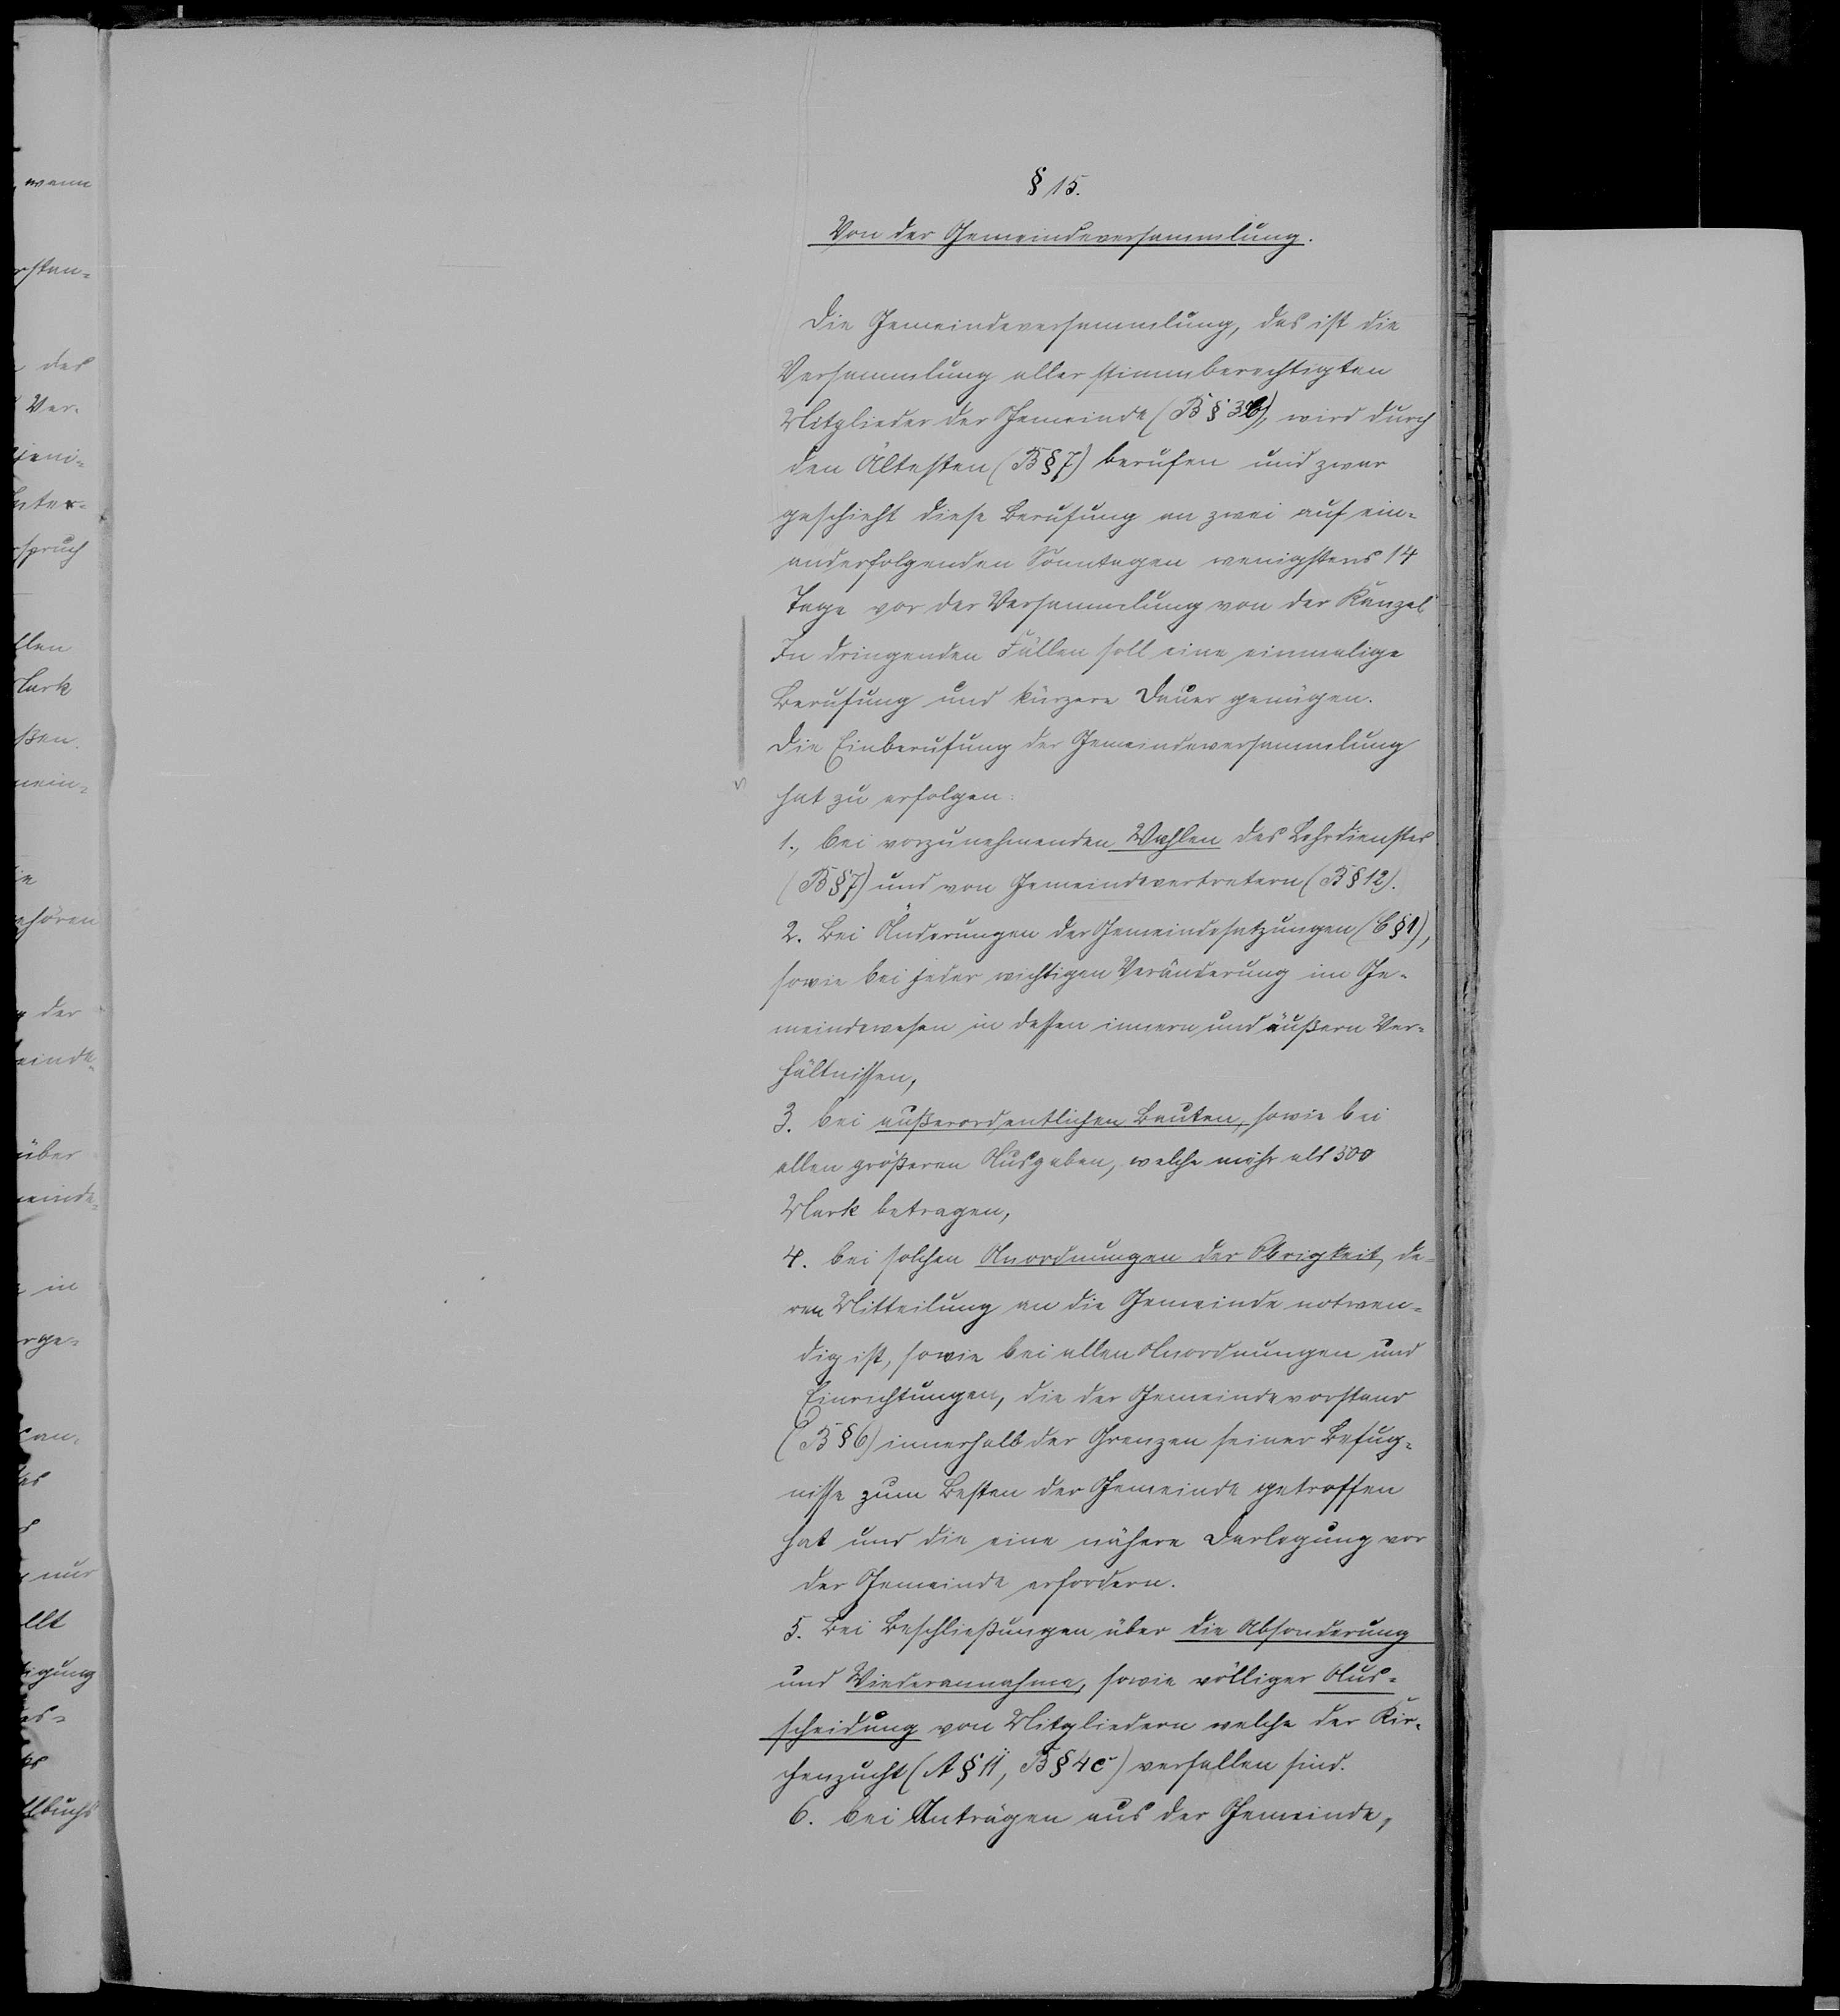 § 15.
Von der Gemeindeversammlung.
Die Gemeindeversammlung, das ist die
Versammlung aller stimmberechtigten
Mitglieder der Gemeinde (B § 3b), wird durch
den Ältesten (B § 7) berufen und zwar
geschieht diese Berufung an zwei auf ein-
anderfolgenden Sonntagen wenigstens 14
Tage vor der Versammlung von der Kanzel
In dringenden Fällen soll eine einmalige
Berufung und kürzere Dauer genügen.
Die Einberufung der Gemeindeversammlung
hat zu erfolgen:
1., bei vorzunehmenden Wahlen des Lehrdienstes
(B § 7) und von Gemeindevertretern (B § 12).
2. Bei Änderungen der Gemeindesatzungen (C § 1),
sowie bei jeder wichtigen Veränderung im Ge-
meindewesen in dessen innern und äußern Ver-
hältnissen,
3. bei außerordentlichen Bauten, sowie bei
allen größeren Ausgaben, welche mehr als 500
Mark betragen,
4. bei solchen Anordnungen der Obrigkeit, de-
ren Mitteilung an die Gemeinde notwen-
dig ist, sowie bei allen Anordnungen und
Einrichtungen, die der Gemeindevorstand
(B § 6) innerhalb der Grenzen seiner Befug-
nisse zum Besten der Gemeinde getroffen
hat und die eine nähere Darlegung vor
der Gemeinde erfordern.
5. Bei Beschließungen über die Absonderung
und Wiederannahme, sowie völliger Aus-
scheidung von Mitgliedern welche der Kir-
chenzucht (A § 11, B § 4c) verfallen sind.
6. bei Anträgen aus der Gemeinde,
wann
des
Ver-
spruch
llen
Mark
ßen
mein-
hören
der
über
in
nur
llt
igung